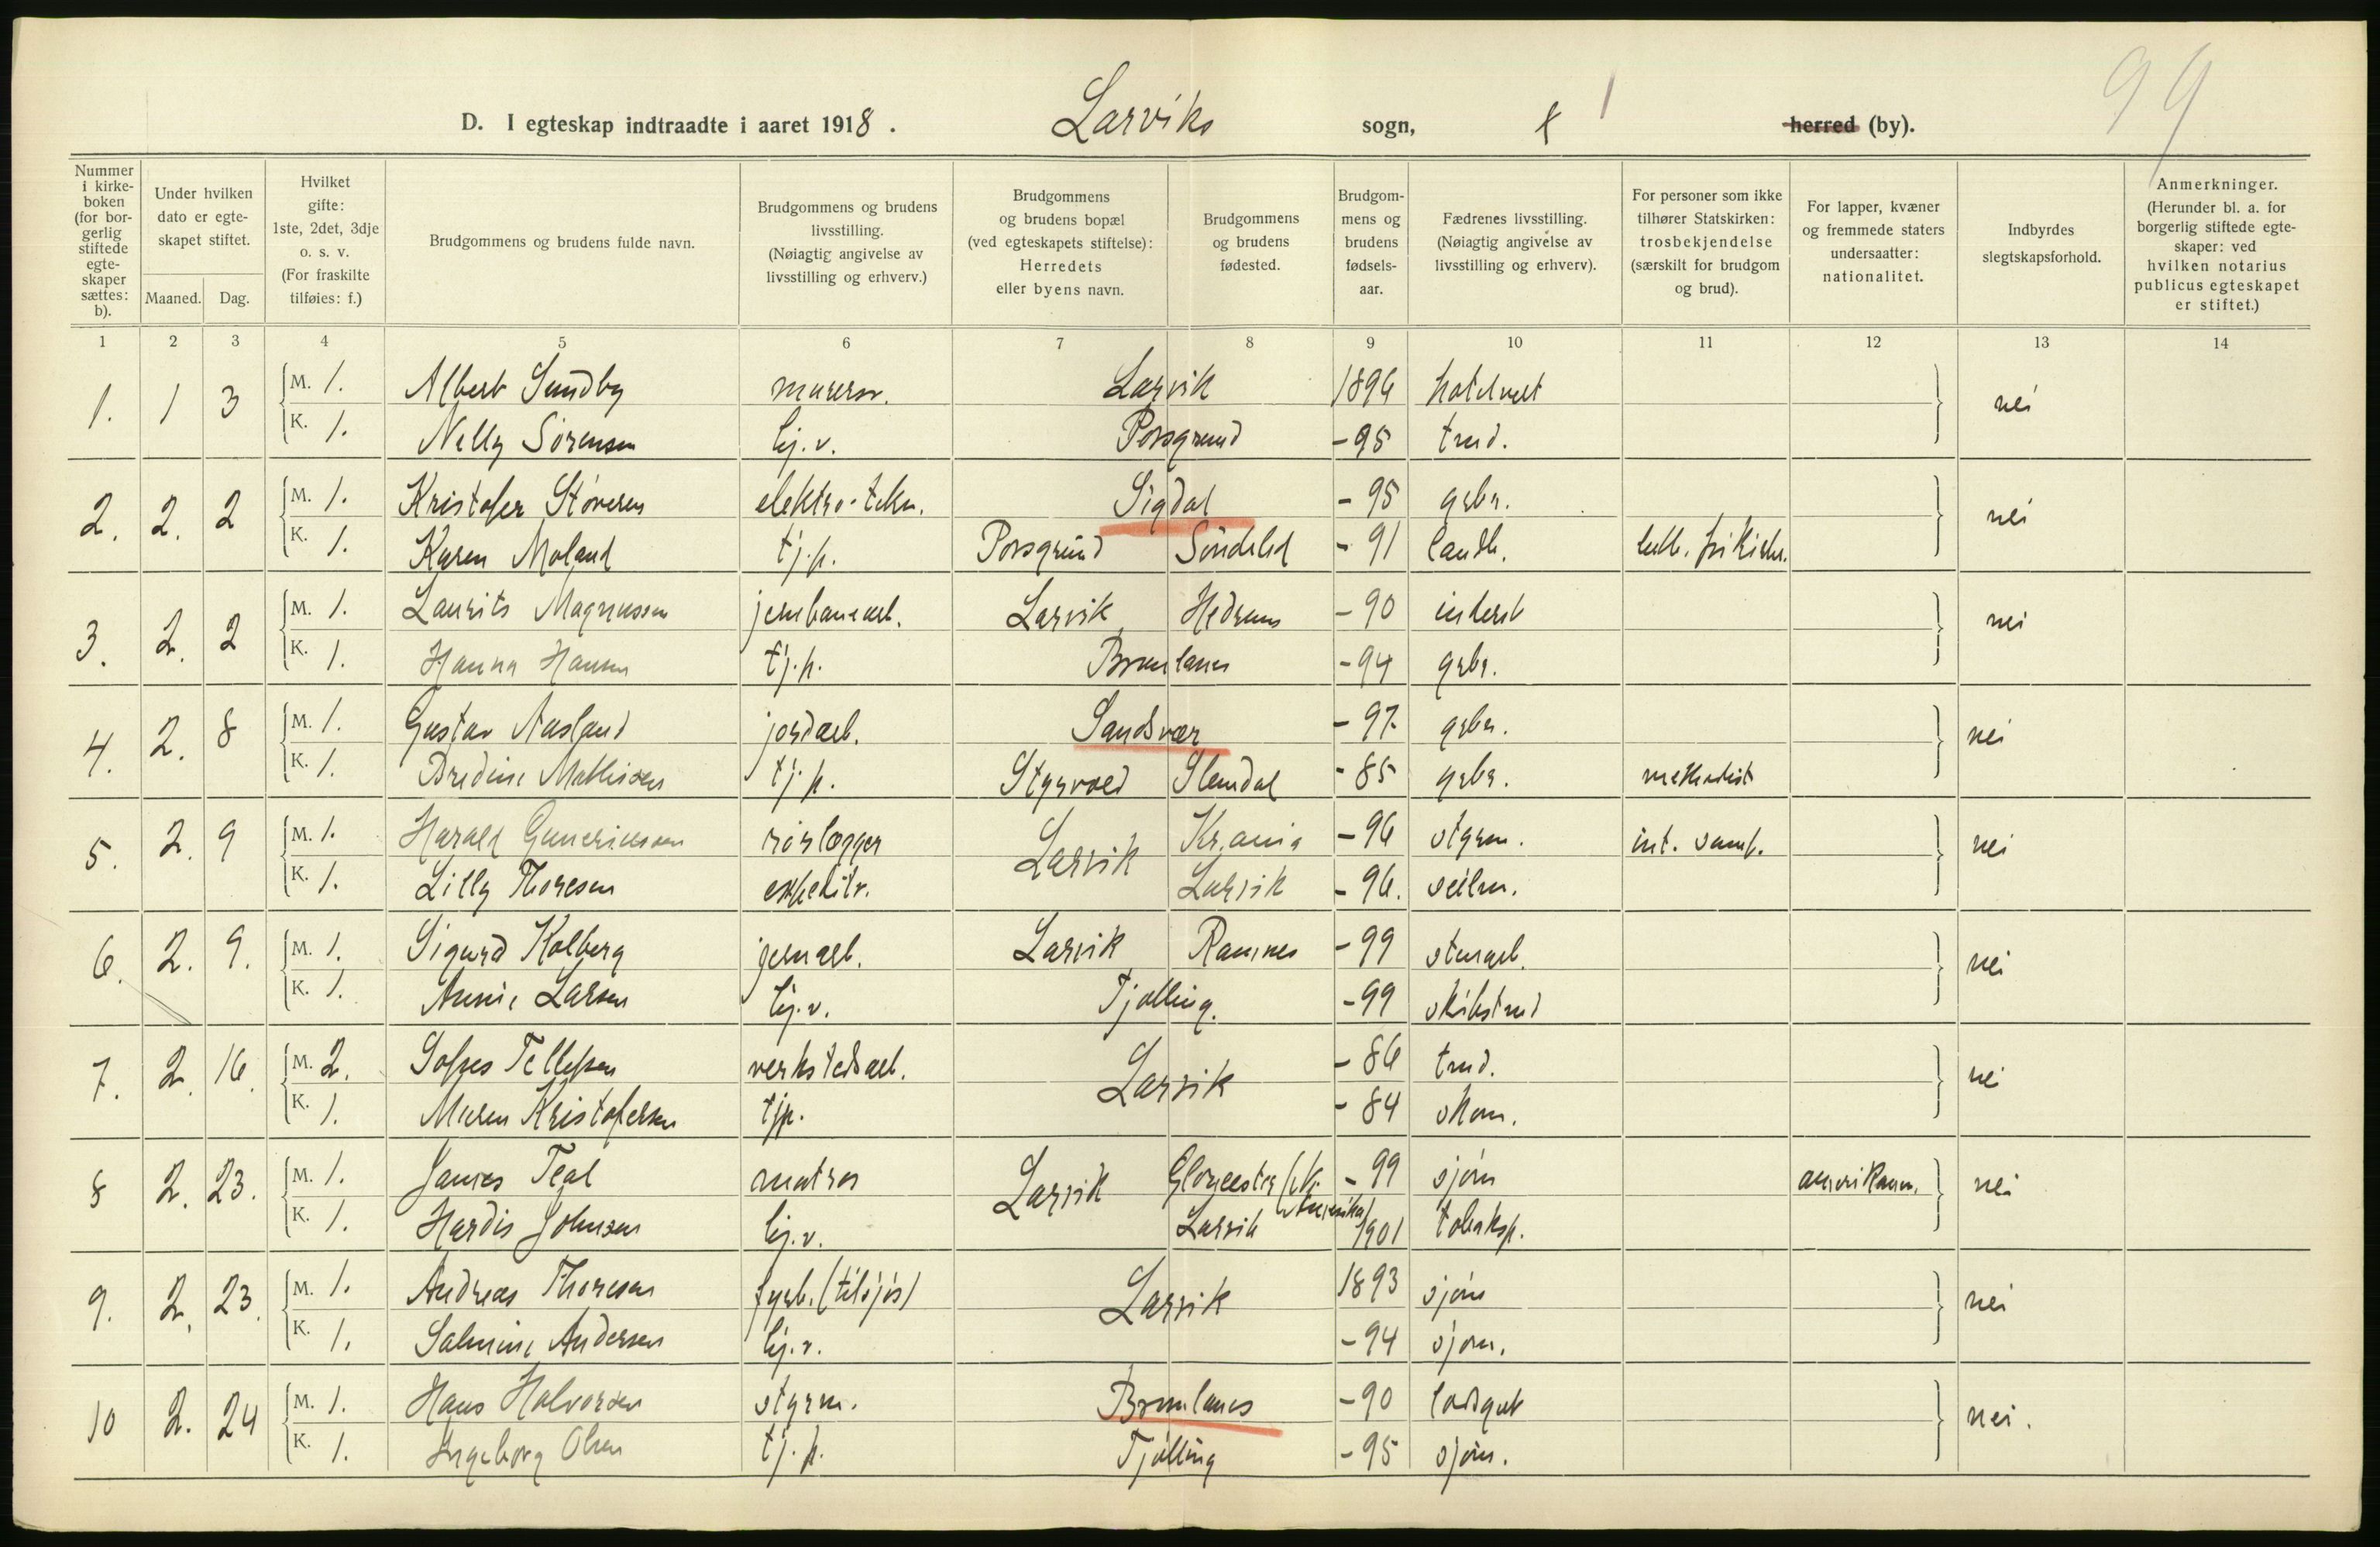 99
D. I egteskap indtraadte i aaret 1918. Larviks sogn, herred (by).
Nummer i kirkeboken (for borgerlig stiftede egteskaper sættes: b).
Under hvilken dato er egteskapet stiftet.
Maaned. Dag.
Hvilket gifte: 1ste, 2det, 3dje o. s. v. (For fraskilte tilføies: f.)
Brudgommens og brudens fulde navn.
Brudgommens og brudens livsstilling. (Nøiagtig angivelse av livsstilling og erhverv.)
Brudgommens og brudens bopæl (ved egteskapets stiftelse): Herredets eller byens navn.
Brudgommens og brudens fødested.
Brudgommens og brudens fødselsaar.
Fædrenes livsstilling. (Nøiagtig angivelse av livsstilling og erhverv).
For personer som ikke tilhører Statskirken: trosbekjendelse (særskilt for brudgom og brud).
For lapper, kvæner og fremmede staters undersaatter: nationalitet.
Indbyrdes slegtskapsforhold.
Anmerkninger. (Herunder bl. a. for borgerlig stiftede egteskaper: ved hvilken notarius publicus egteskapet er stiftet.)
1 2 3 4 5 6 7 8 9 10 11 12 13 14
1. 1 3 M. 1. Albert Sundby murersv. Larvik 1896 nei
K. 1. Nelly Sørensen Porsgrund -95 tmd.
2. 2. 2 M. 1. Kristofer Støveren elektro-tekn. Sigdal -95 grbr. nei
K. 1. Karen Moland tj.p. Porsgrund Søndeled -91 landh. luth. frikirke.
3. 2. 2 M. 1. Laurits Magnussen jernbanearb. Larvik Hedrum -90 inderst nei
K. 1. Hanna Hansen tj.p. Brunlanes -94 grbr.
4. 2. 8 M. 1. Gustav Aasland jordarb. Sandsvær -97 grbr. nei
K. 1. Bredine Mathisen tj.p. Styrvold Slemdal -85 grbr. methodist
5. 2. 9 M. 1. Harald Gunerius​sen rørlægger Larvik Kr.ania -96 styrm. nei
K. 1. Lilly Thoresen expeditr. Larvik -96. seilm.
6. 2. 9. M. 1. Sigurd Kolberg jernarb. Larvik Ramnes -99 stenarb. nei
K. 1. Annie Larsen Tjølling. -99 skibstmd
7. 2. 16. M. 2. Sofus Tellefsen verkstedsarb. Larvik -86 tmd. nei
K. 1. Maren Kristofersen tjp. -84 skom.
8 2. 23. M. 1. James Teal matros Larvik Gloucester Amerika -99 sjøm amerikann. nei
K. 1. Hardis Johnsen Larvik 1901 tobaksp.
9. 2. 23. M. 1. Andreas Thoresen fyrb. (tilsjøs) Larvik 1893 sjøm nei
K. 1. Salmine Andersen -94 sjøm.
10 2. 24 M. 1. Hans Halvorsen styrm. Brunlanes -90 nei.
K. 1. Ingeborg Olsen tj.p. Tjølling -95 sjøm.